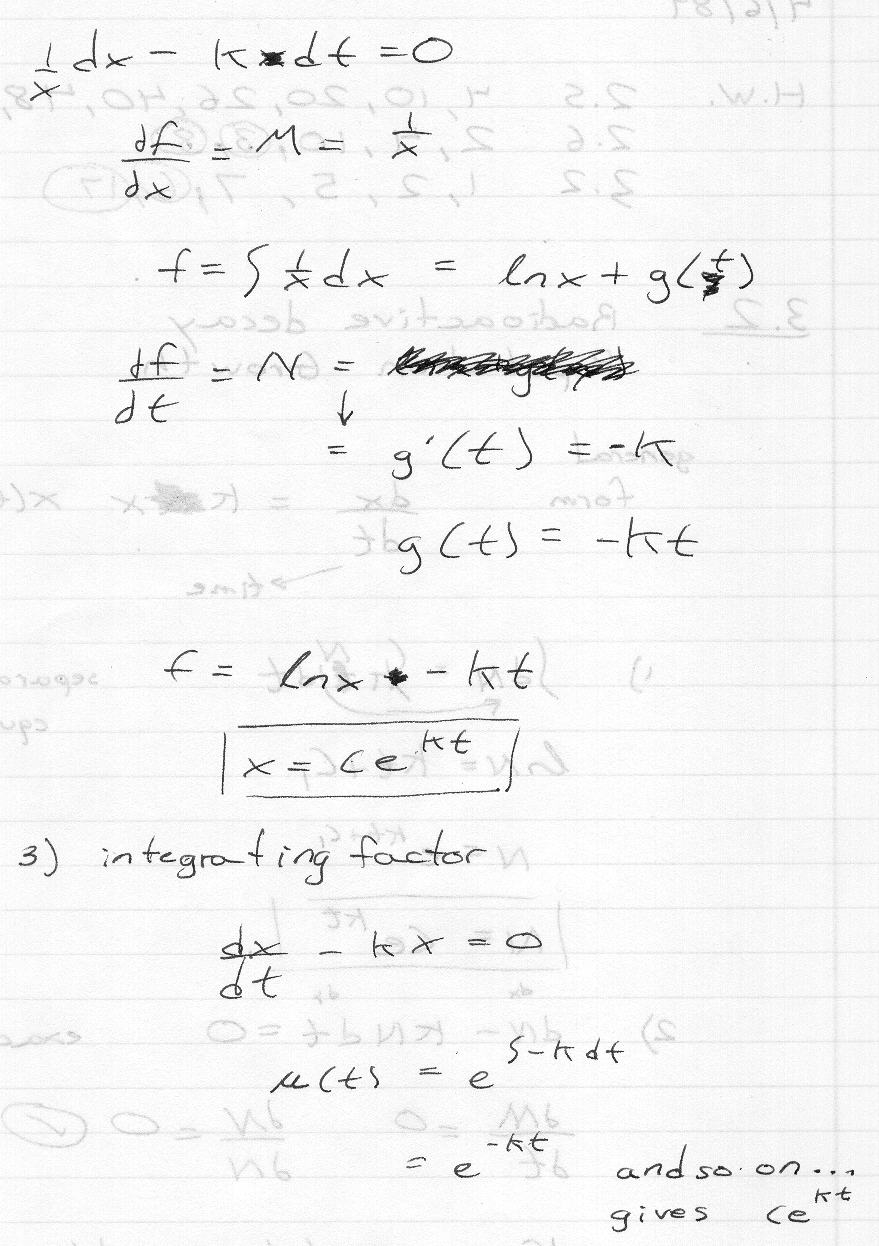 1/x dx - k dt = 0
df/dx = M = 1/x
f = ∫ 1/x dx = ln x + g(t)
df/dt = N =
↓
= g'(t) = -k
g(t) = -kt
f = ln x - kt
x = Ce^{kt}
3) integrating factor
dx/dt - kx = 0
μ(t) = e^{∫-k dt}
= e^{-kt} and so on...
gives Ce^{kt}